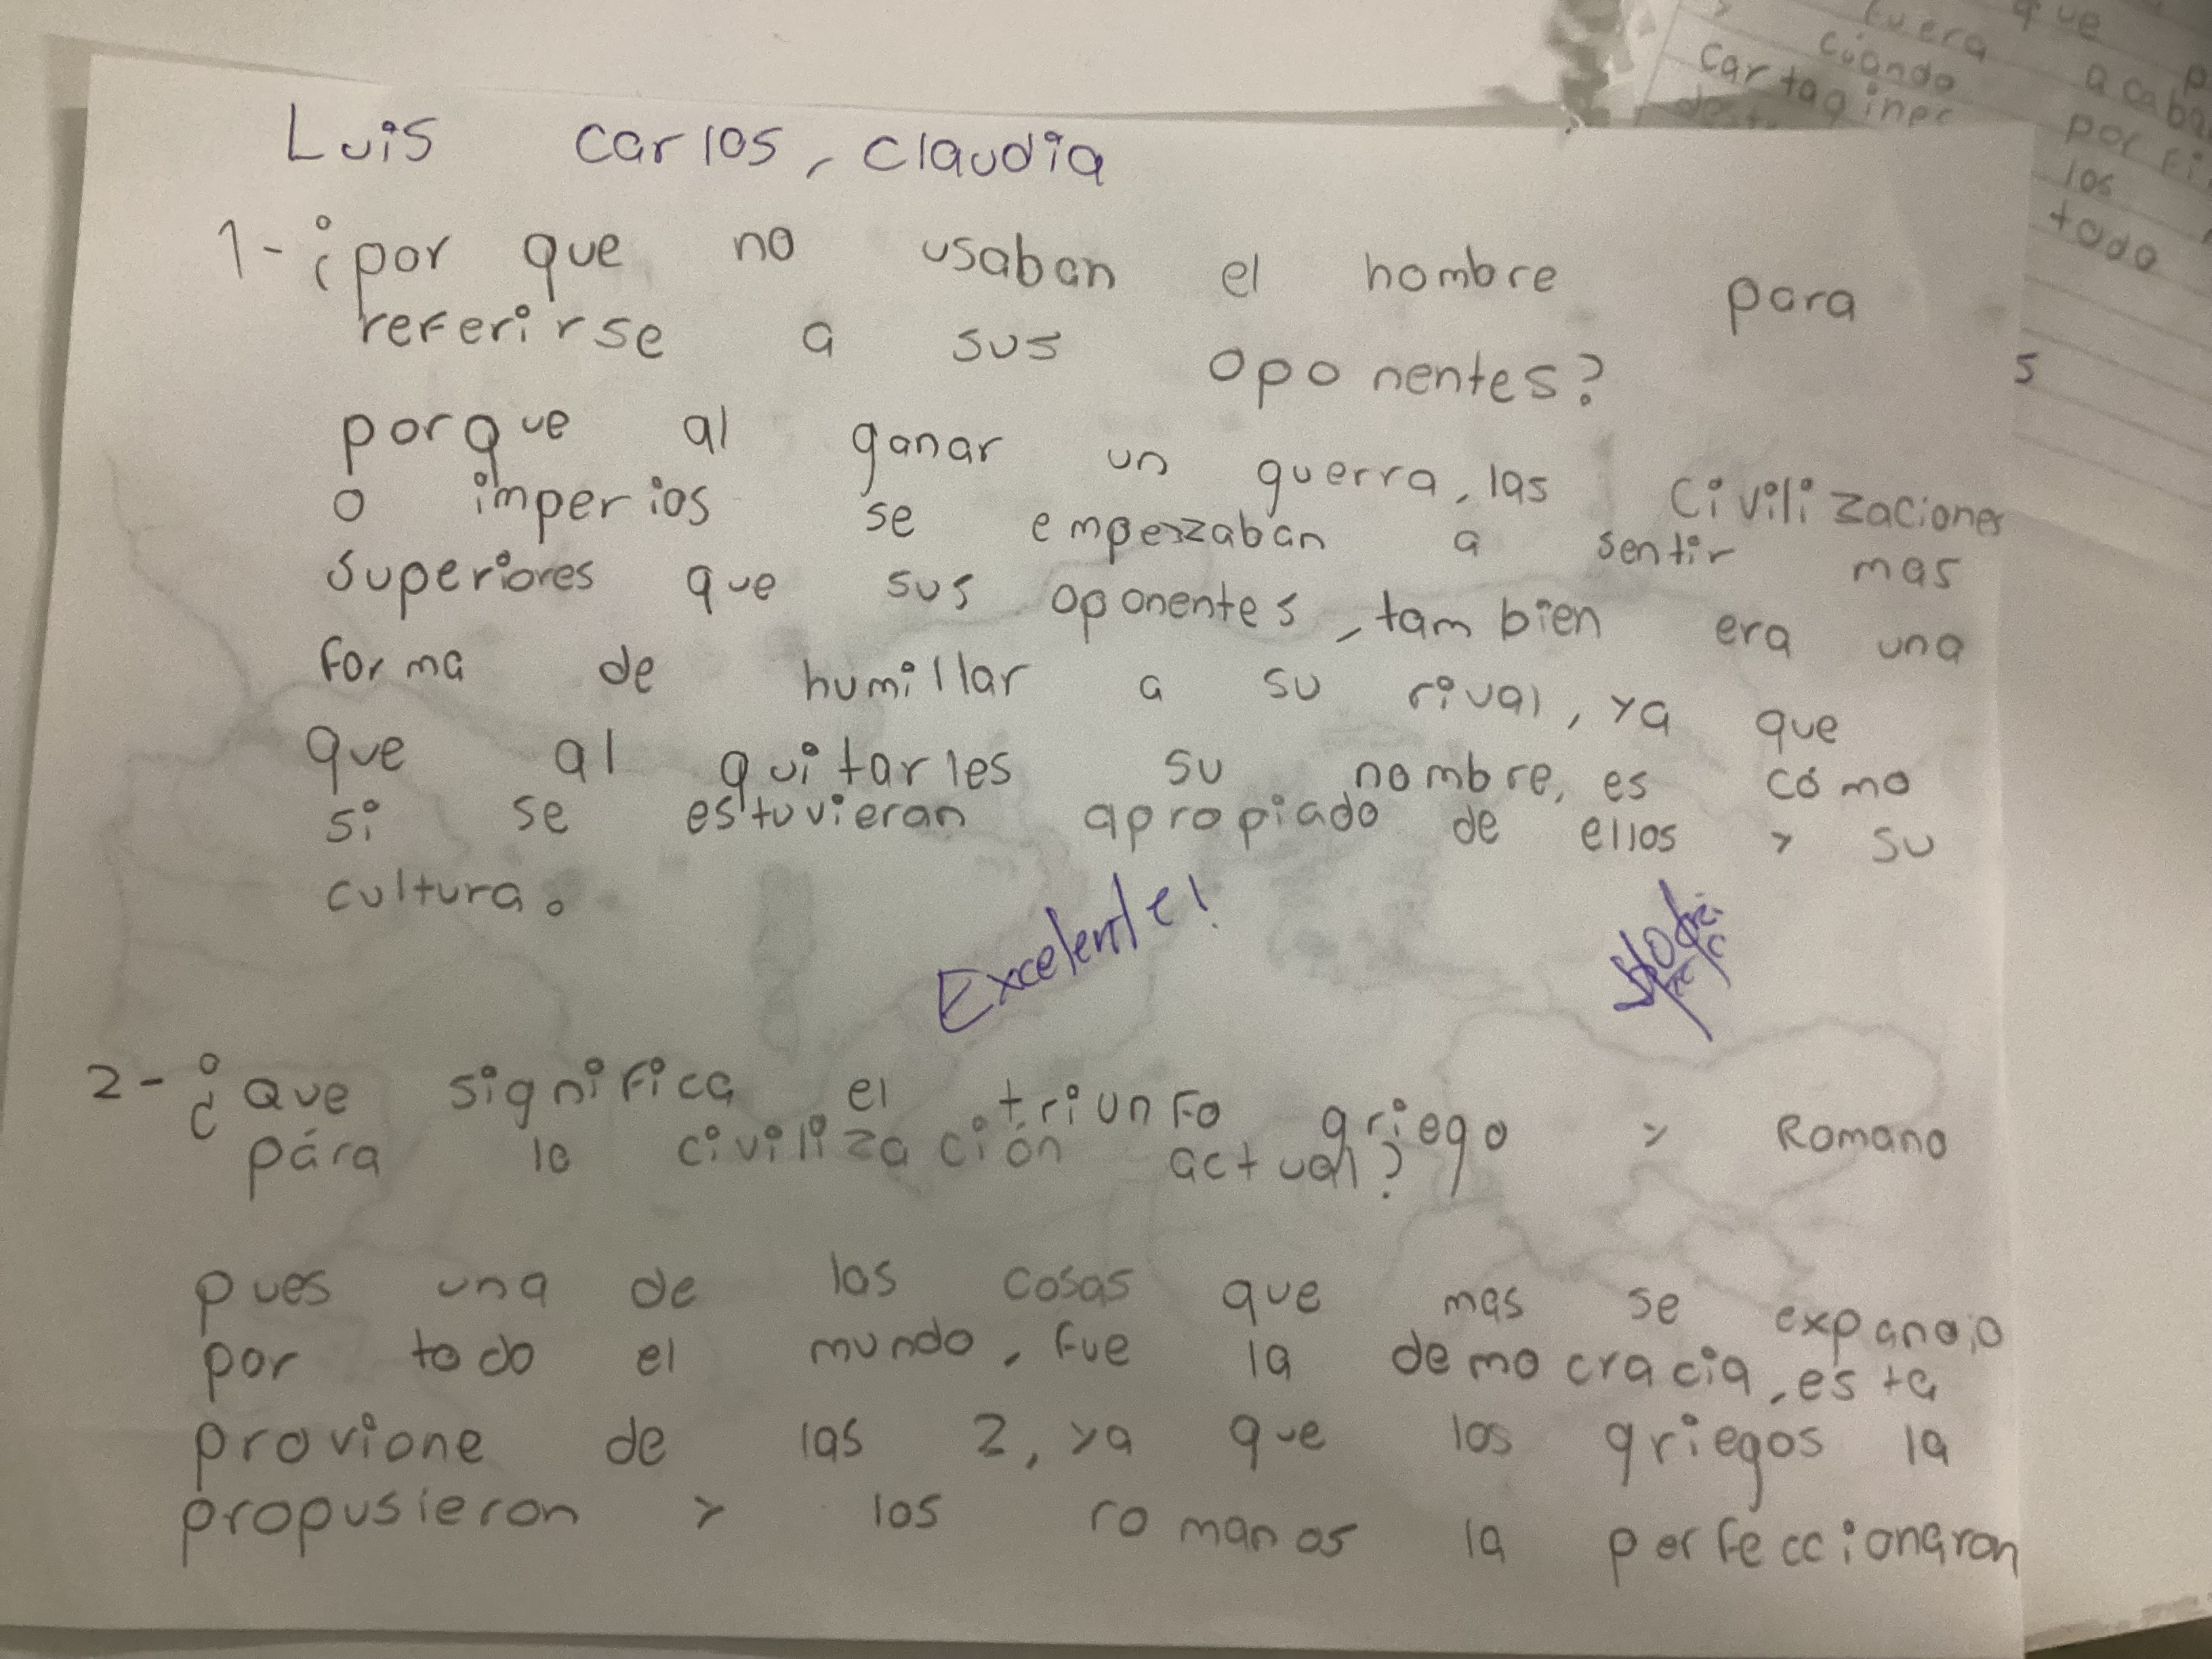 Luis Carlos, Claudia
1- ¿por que no usaban el nombre para
referirse a sus oponentes?
porque al ganar un guerra, las civilizaciones
o imperios se empezaban a sentir mas
superiores que sus oponentes, tambien era una
forma de humillar a su rival, ya que
que al quitarles su nombre, es cómo
si se estuvieran apropiado de ellos y su
cultura.
Excelente!
2- ¿Que significa el triunfo griego y Romano
pára la civilización actual?
pues una de las cosas que mas se expandio
por todo el mundo, fue la democracia, esta
provione de las 2, ya que los griegos la
propusieron y los romanos la perfeccionaron
fuera que
cuando acaba
Cartagines por fi
los
todo
s